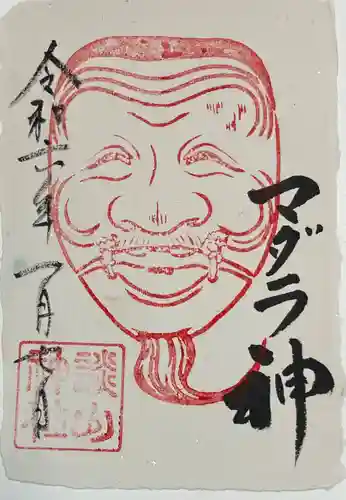 マダラ神
令和六年一月七日
談山
神社